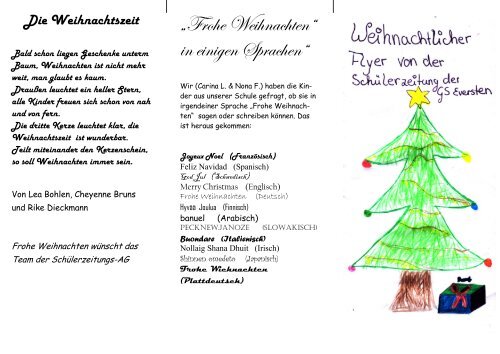 Die Weihnachtszeit
Bald schon liegen Geschenke unterm
Baum, Weihnachten ist nicht mehr
weit, man glaubt es kaum.
Draußen leuchtet ein heller Stern,
alle Kinder freuen sich schon von nah
und von fern.
Die dritte Kerze leuchtet klar, die
Weihnachtszeit ist wunderbar.
Teilt miteinander den Kerzenschein,
so soll Weihnachten immer sein.
Von Lea Bohlen, Cheyenne Bruns
und Rike Dieckmann
Frohe Weihnachten wünscht das
Team der Schülerzeitungs-AG
„Frohe Weihnachten“
in einigen Sprachen“
Wir (Carina L. & Nona F.) haben die Kin-
der aus unserer Schule gefragt, ob sie in
irgendeiner Sprache „Frohe Weihnach-
ten“ sagen oder schreiben können. Das
ist heraus gekommen:
Joyeux Noel (Französisch)
Feliz Navidad (Spanisch)
God Jul (Schwedisch)
Merry Christmas (Englisch)
Frohe Weihnachten (Deutsch)
Hyvää Joulua (Finnisch)
banuel (Arabisch)
PECKNEWJANOZE (SLOWAKISCH)
Buondare (Italienisch)
Nollaig Shana Dhuit (Irisch)
Shinnen omedeto (Japanisch)
Frohe Wiehnachten
(Plattdeutsch)
Weihnachtlicher
Flyer von der
Schülerzeitung der
GS Eversten